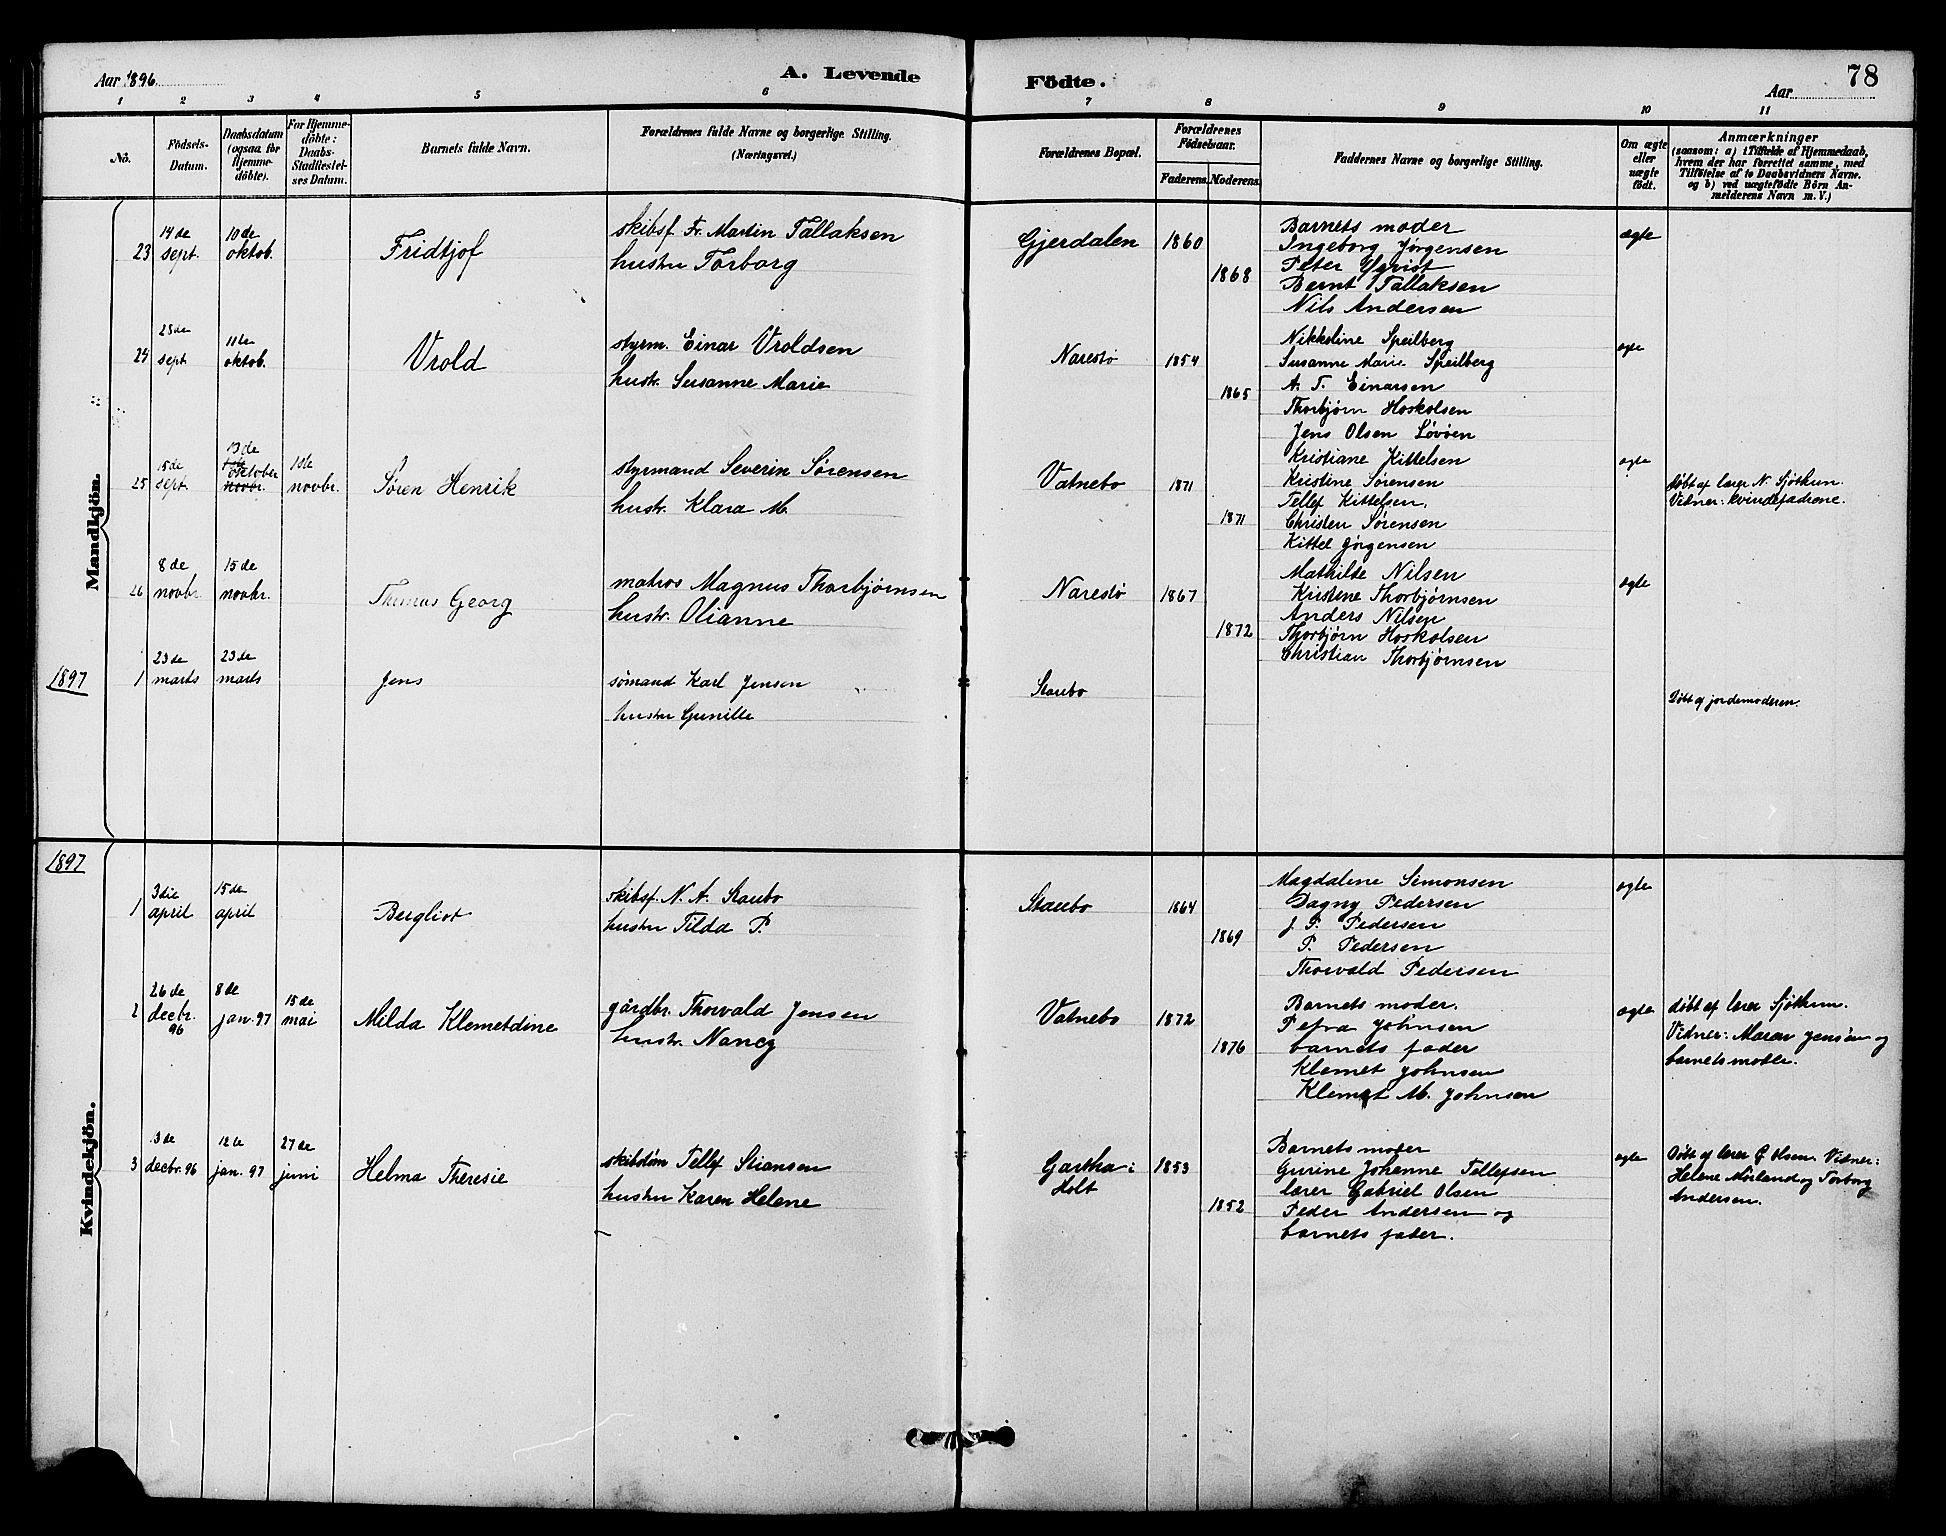 Aar 1896.
A. Levende Födte.
Aar
78
1 2 3 4 5 6 7 8 9 10 11
Nö.
Födsels-Datum.
Daabsdatum (ogsaa for Hjemme-döbte).
For Hjemme-döbte: Daabs-Stadfæstel-ses Datum.
Barnets fulde Navn.
Forældrenes fulde Navne og borgerlige Stilling.
(Næringsvei.)
Forældrenes Bopæl.
Forældrenes Födselsaar.
Faderens. Moderens.
Faddernes Navne og borgerlige Stilling.
Om ægte eller uægte födt.
Anmærkninger
(saasom: a) i Tilfælde af Hjemmedaab,
hvem der har forrettet samme, med
Tilföielse af to Daabsvidners Navne.
og b) ved uægtefödte Börn An-
melderens Navn m. V.)
Mandkjön.
23 14de sept. 10de oktob. Fridtjof
skibsf. Fr. Martin Tallaksen
hustru Torborg
Gjerdalen 1860 1868
Barnets moder
Ingeborg Jørgensen
Peter Ygrist
Bernt Tallaksen
Nils Andersen
ægte
24 23de sept 11te oktob. Vrold
styrm. Einar Vroldsen
hustr. Susanne Marie
Narestø 1854 1865
Nikkoline Speilberg
Susanne Marie Speilberg
A. T. Einarsen
Thorbjørn Hoskolsen
Jens Olsen Løvöen
ægte
25 15de sept. 13de oktober 1ste novbr. 1de novbr. Søren Henrik
styrmand Severin Sørensen
hustr. Klara M.
Vatnebo 1871 1871
Kristiane Kittelsen
Kristine Sørensen
Tellef Kittelsen.
Christen Sørensen
Kittel Jørgensen
ægte
døbt af lærer N. Sjøthun.
Vidner: kvindefadrene.
26 8de novbr. 15de novbr. Thomas Georg
matros Magnus Thorbjørnsen
hustr. Olianne
Narestø 1867 1872
Mathilde Nilsen
Kristine Thorbjørnsen
Anders Nilsen
Thorbjørn Hoskolsen
Christian Thorbjørnsen
ægte
1897
1 23de marts 23de marts Jens
sømand Karl Jensen
hustru Gunille
Staubo
Døbt af jordemoderen.
1897
Kvindekjön.
1 3die april 15de april Bergliot
skibsf. N. A. Staubo
hustru Tilda P.
Staubo 1864 1869
Magdalene Simonsen
Dagny Pedersen
J. P. Pedersen
P. Pedersen
Thorvald Pedersen
ægte
2 26de decbr. 96 8de jan. 97 15de mai Milda Klemetdine
gårdbr. Thorvald Jensen
hustr. Nancy
Vatnebo 1872 1876
Barnets moder.
Petra Johnsen
barnets fader
Klemet Johnsen
Klemet M. Johnsen
ægte
døbt af lærer Sjøthun.
Vidner: Maren Jensen og
barnets moder.
3 3de decbr. 96 12te jan. 97 27de juni Helma Theresie
skibstøm Tellef Stiansen
hustru Karen Helene
Gartha: Holt 1853 1852
Barnets moder
Gurine Johanne Tellefsen
lærer Gabriel Olsen
Peder Andersen og
barnets fader.
ægte
Døbt af lærer G Olsen. Vidner:
Helene Mörland og Torborg
Andersen.